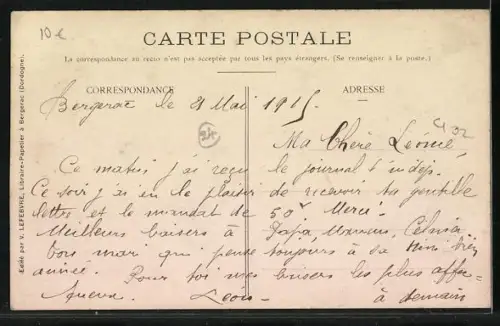 10 €
CARTE POSTALE
La correspondance au recto n'est pas acceptée par tous les pays étrangers. (Se renseigner à la poste.)
CORRESPONDANCE ADRESSE
Edité par V. LEFEBVRE, Libraire-Papetier à Bergerac (Dordogne).
Bergerac le 21 Mai 1915
24
Ma Chère Léonie,
Ce matin j'ai reçu le journal
Ce soir j'ai eu le plaisir de recevoir ta gentille
lettre et le mandat de 50f Merci
Meilleurs baisers à Papa Maman,
Ton mari qui pense toujours à sa Mimi bien
aimée. Pour toi mes baisers les plus affec
Léon - à demain